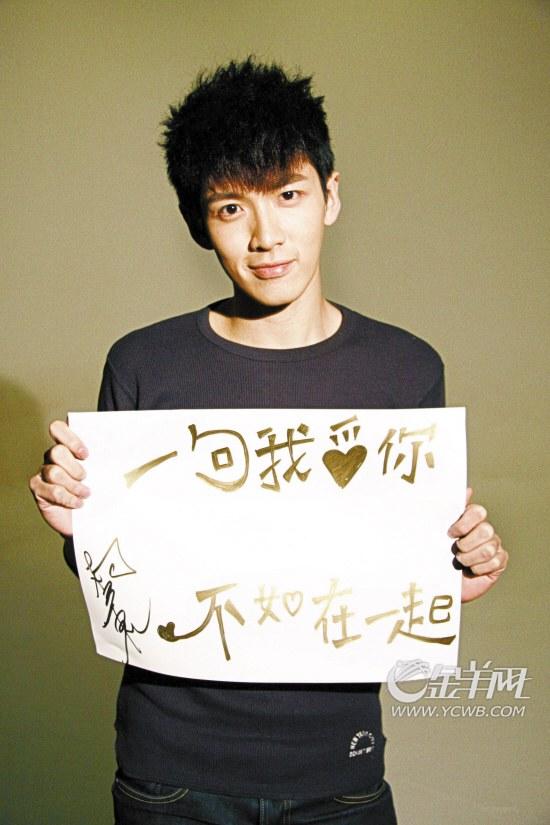 一句我爱你
不如♡在一起
金羊网
WWW.YCWB.COM
NEW YORK